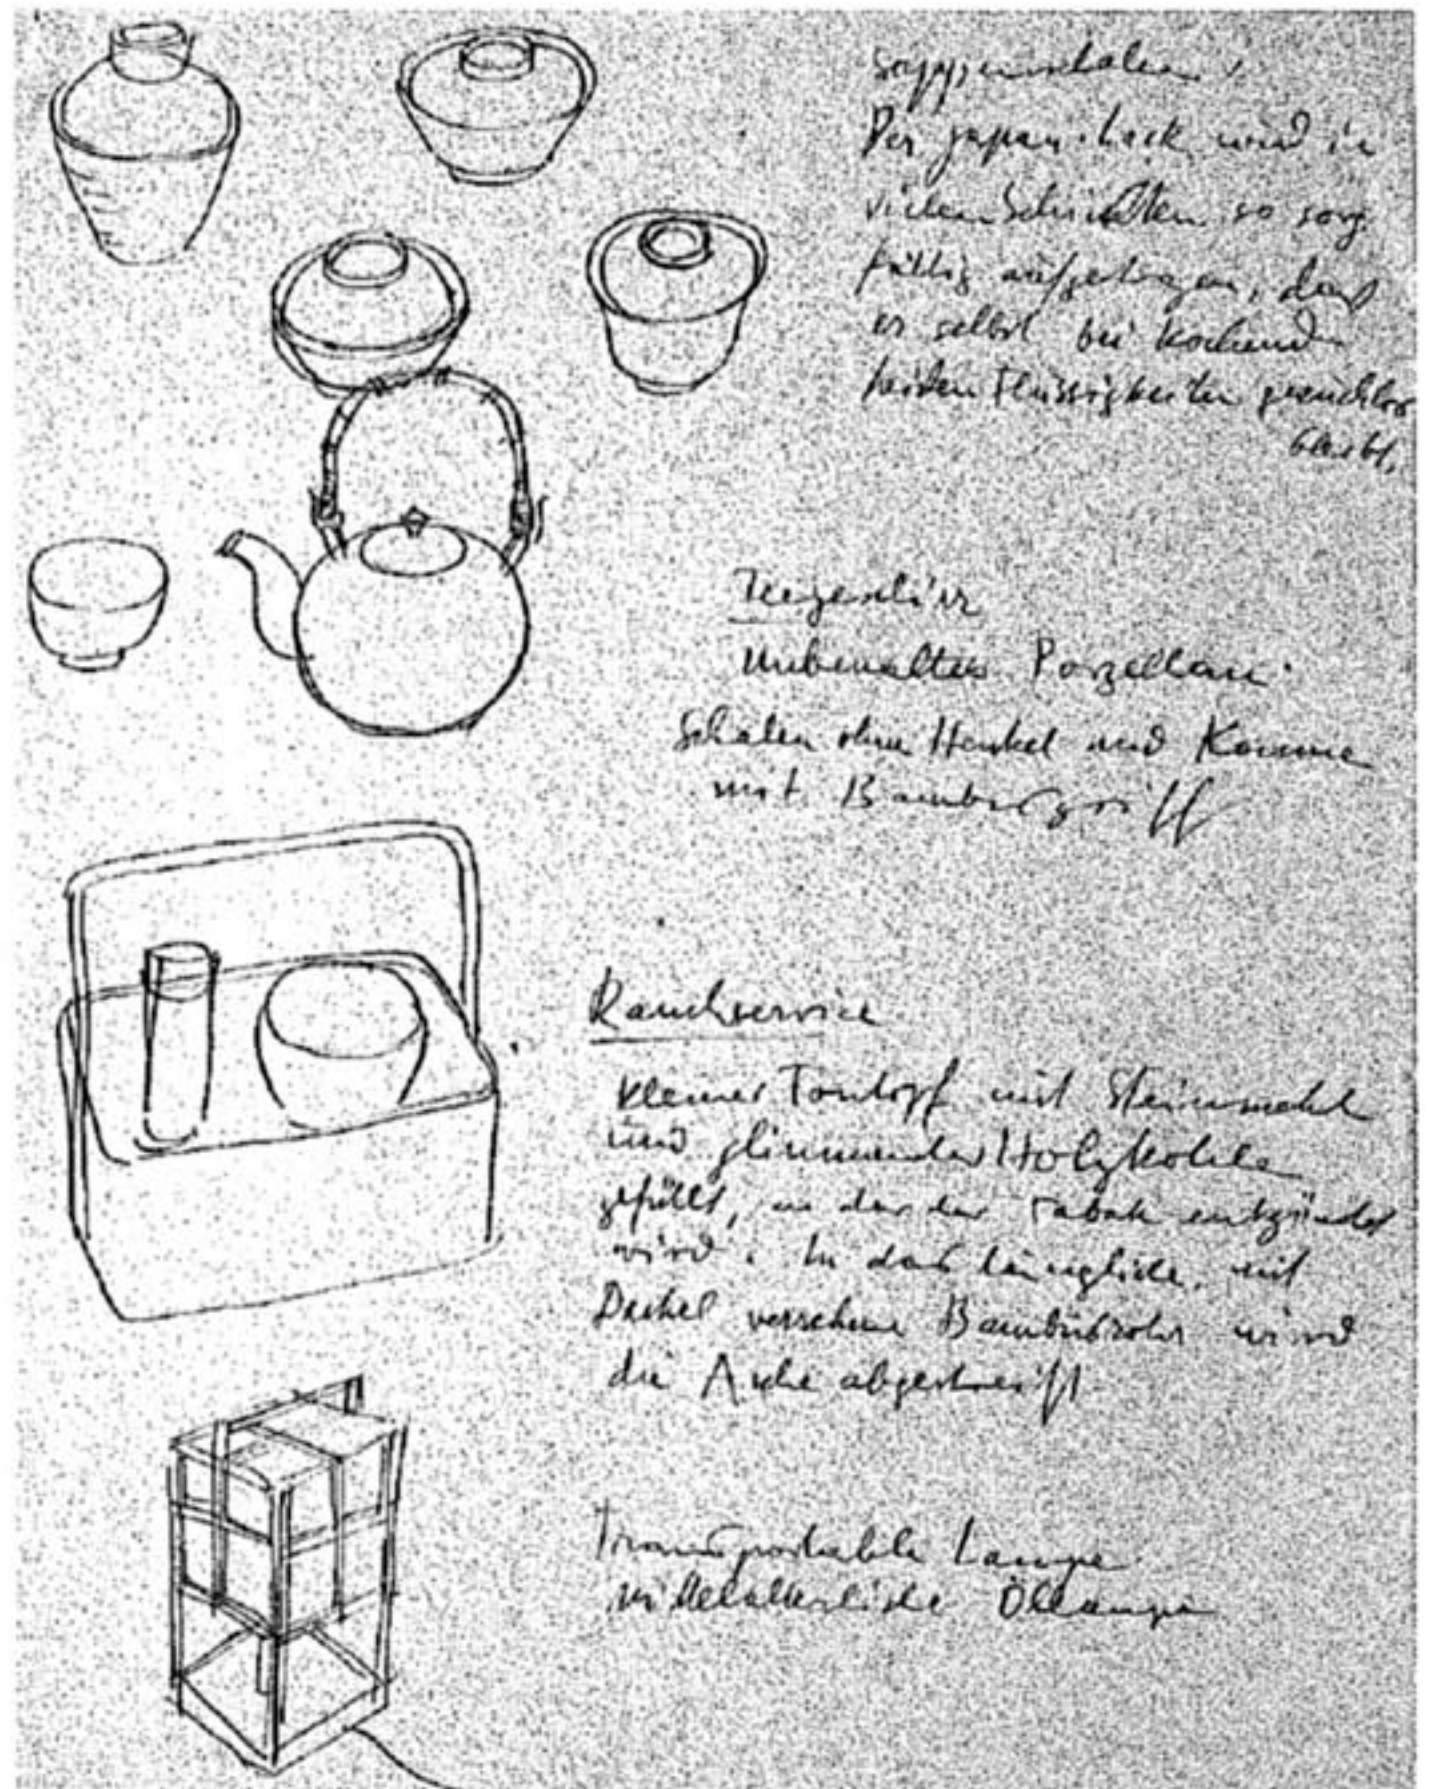 Suppenschalen,
Der Japan-Lack wird in
vielen Schichten so sorg-
fältig aufgetragen, dass
er selbst bei kochend
heißen Flüssigkeiten geruchlos
bleibt.
Teegeschirr
Unbemaltes Porzellan.
Schalen ohne Henkel und Kanne
mit Bambusgriff
Rauchservice
kleiner Tontopf mit Steinmehl
und glimmender Holzkohle
gefüllt, an der der Tabak entzündet
wird. In das längliche, mit
Deckel versehene Bambusrohr wird
die Asche abgestreift
Transportable Lampe
mittelalterliche Öllampe